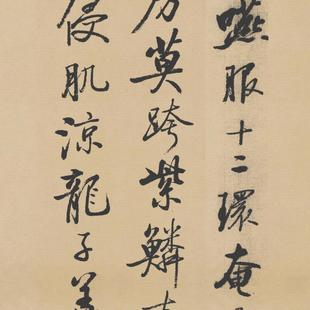 嚥服十二環奄
莫跨紫鱗
侵肌涼龍子